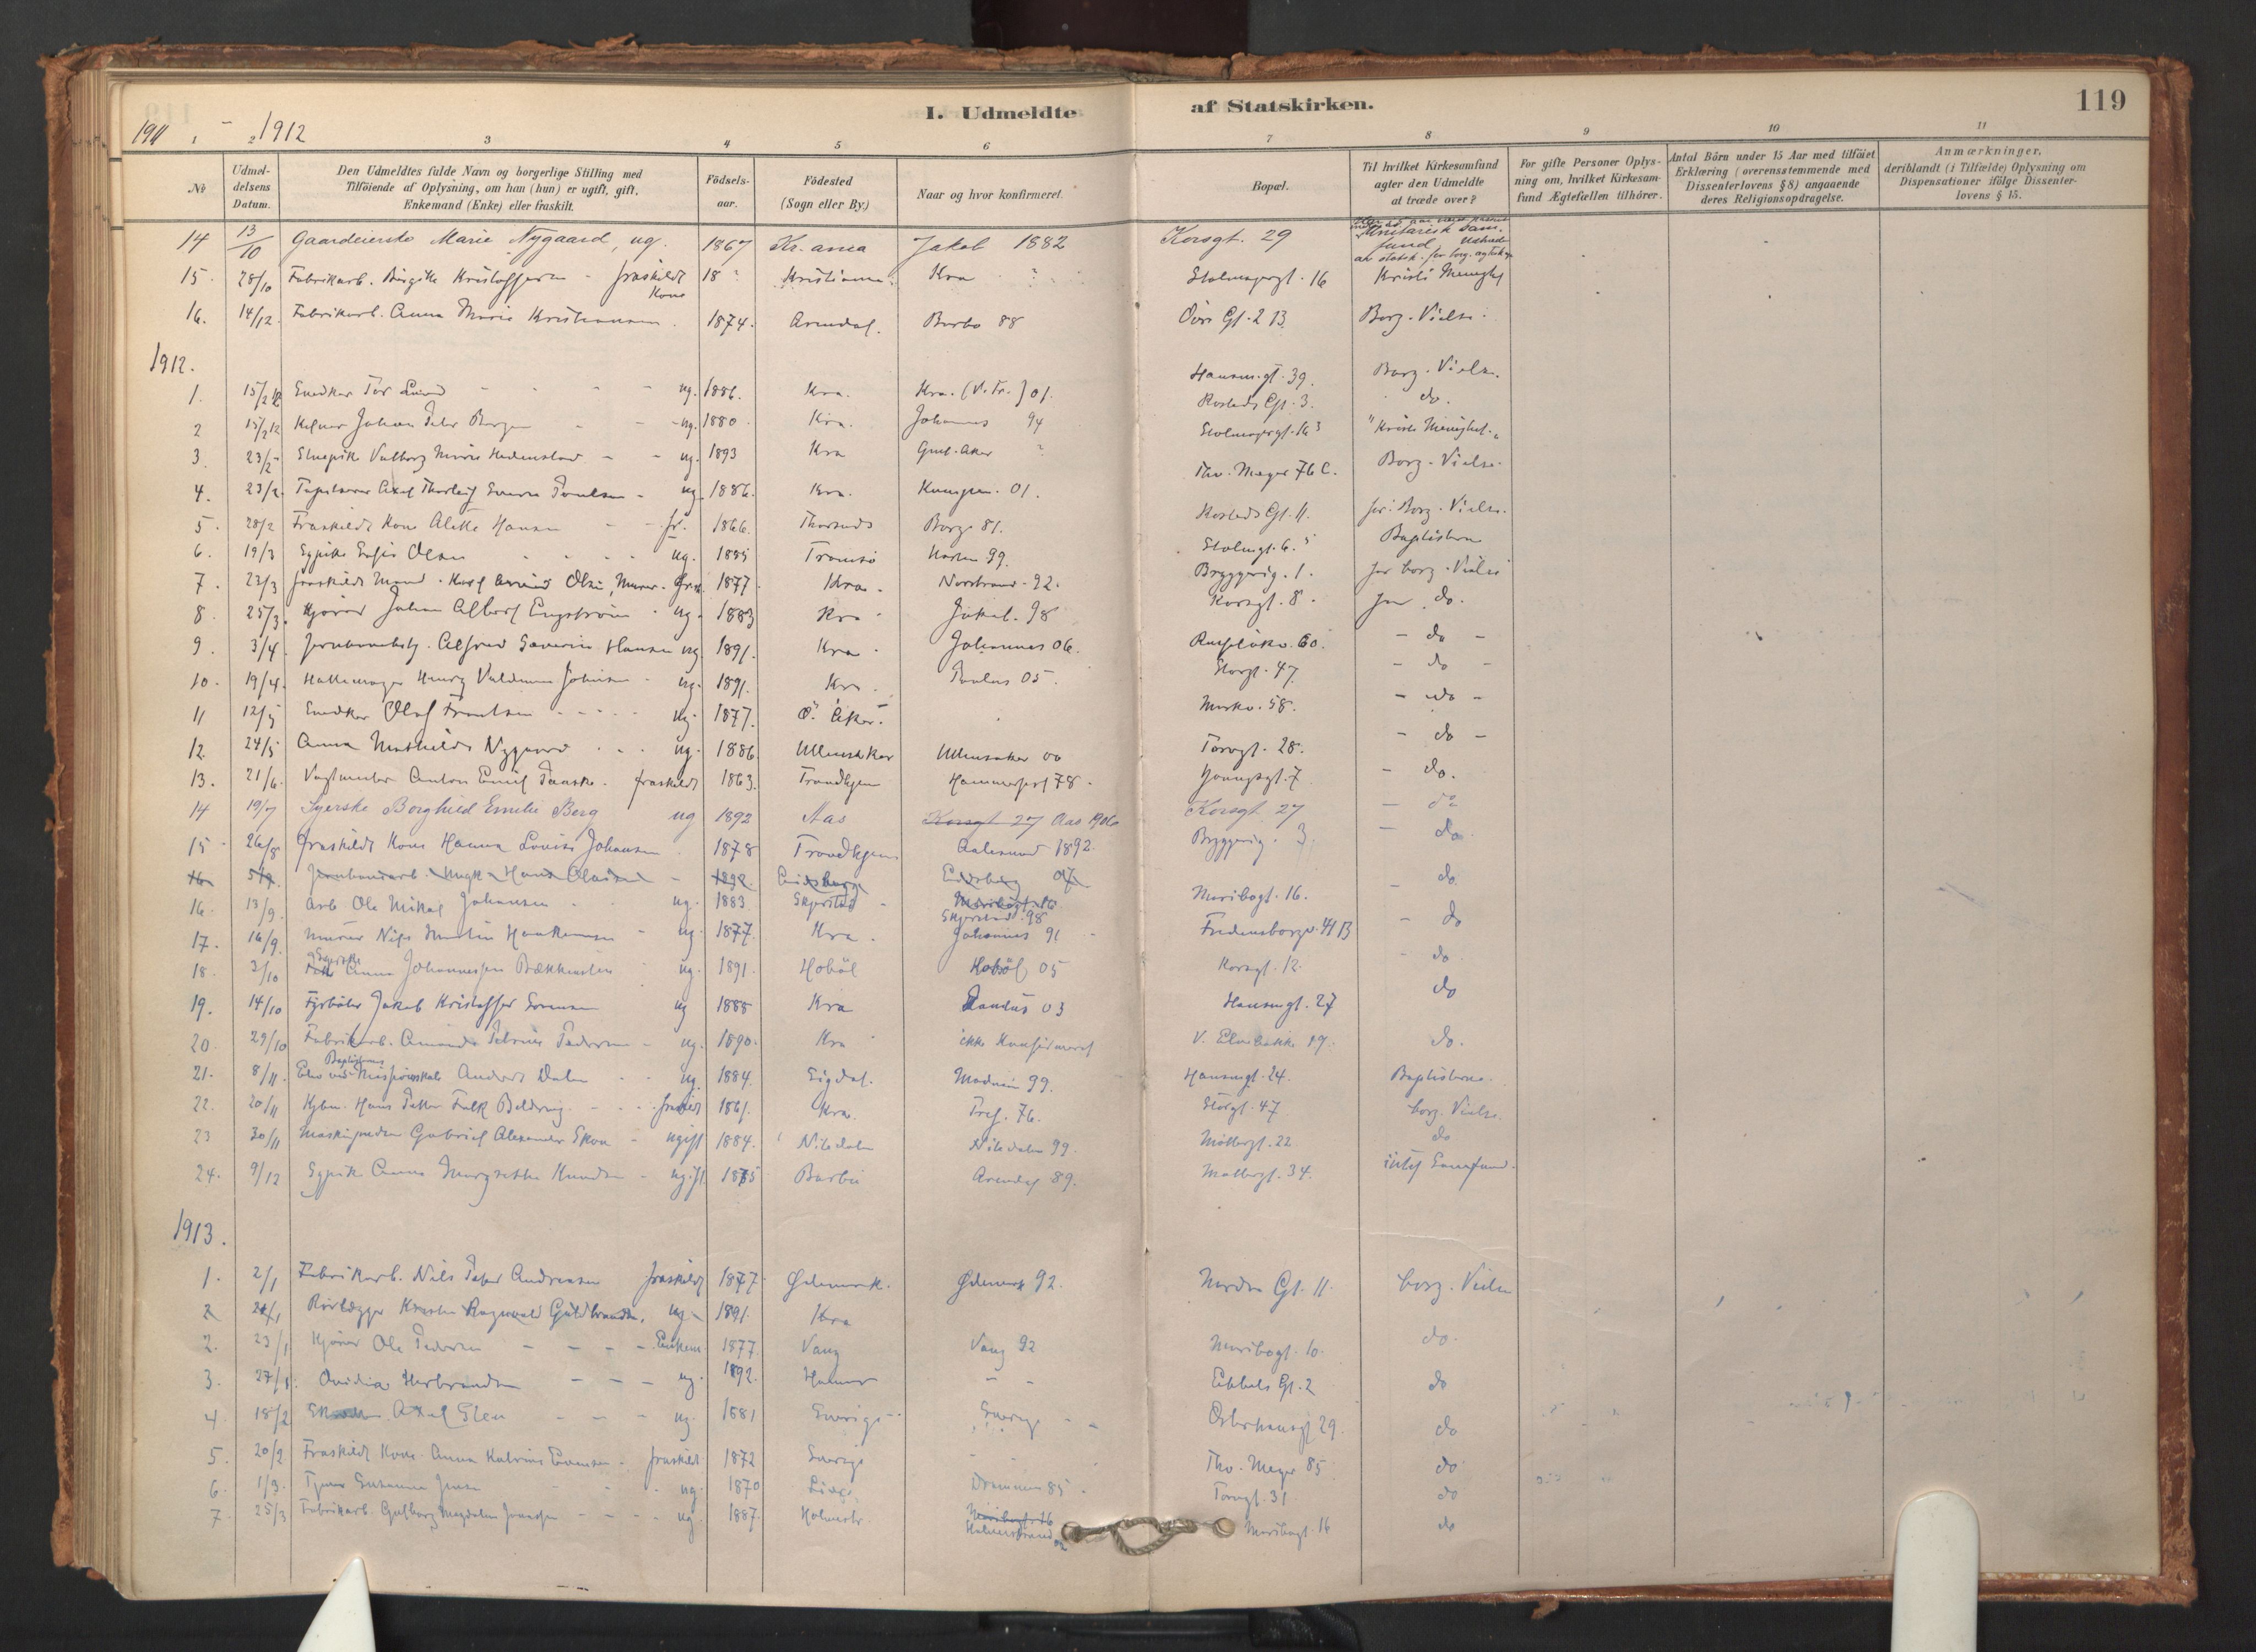 I. Udmeldte af Statskirken. 119
1911 - 1912
1 2 3 4 5 6 7 8 9 10 11
No
Udmeldelsens Datum.
Den Udmeldtes fulde Navn og borgerlige Stilling med
Tilföiende af Oplysning, om han (hun) er ugift, gift,
Enkemand (Enke) eller fraskilt.
Födselsaar.
Födested
(Sogn eller By.)
Naar og hvor konfirmeret.
Bopæl.
Til hvilket Kirkesamfund
agter den Udmeldte
at træde over?
For gifte Personer Oplysning
om, hvilket Kirkesamfund
Ægtefællen tilhörer.
Antal Börn under 15 Aar med tilföiet
Erklæring (overensstemmende med
Dissenterlovens § 8) angaaende
deres Religionsopdragelse.
Anmærkninger,
deriblandt (i Tilfælde) Oplysning om
Dispensationer ifölge Dissenterlovens
§ 15.
14 13/10 Gaardeierske Marie Nygaard, ug. 1867 Kr.ania Jakob 1882 Korsgt. 29 Unitarisk Samfund
15 28/10 Fabrikarb. Birgitte Kristoffersen - fraskildt Kone 18 Kristiania Kra Stolmagergt. 16 Kristi Menighed
16. 14/12 Fabrikarb. Anna Marie Kristiansen 1874. Arendal. Barbo 88 Övre Gt. 2 B. Borg. Vielse.
1912.
1. 15/2 12 Snedker Tor Lund ug. 1886. Kra. Kra. (V. Fr.) 01. Hausm.gt. 39. Borg. Vielse.
2 15/2 12 Kelner Johan Peter Bergen - ug. 1880 Kra. Johannes 94 Rosteds Gt. 3. do.
3. 23/2 Valborg Marie Hedenstad - ug. 1893 Kra Gml. Aker Stolmagergt. 16 "Kristi Menighet"
4. 23/2 Tapetserer Axel Thorleif Sverre Poulsen - ug. 1886. Kra. Kampen. 01. Thv. Meyer 76 C. Borg. Vielse.
5. 28/2 Fraskildt Kone Alette Hansen - fr. 1866. Borge 81. Rosteds Gt. 11. for Borg. Vielse.
6. 19/3 Sypike Sofie Olsen ug. 1885 Tromsö 99. Stolmgt. 6. Baptisterne
7. 23/3 fraskildt Mand. Olsen, Murer. 1877 Kra. Norstrand - 92. Bryggerig. 1. for borg. Vielse
8. 25/3. Kjörer Johan Albert Engström ug. 1883 Kra Jakob. 98 Korsgt. 8. for do.
9. 3/4. Jernbanebetj. Alfred Severin Hansen ug. 1891. Kra. Johannes 06. 60. - do -
10. 19/4. Hattemager Henry Valdemar Johnsen ug. 1891. Kra. Paulus 05. Storgt. 47 - do -
11 12/5 Snedker Olaf Frantsen ug. 1877. Ö. Aker. Markv. 58. - do -
12. 24/5 Anna Mathilde Nygaard ug. 1886 Ullensaker Ullensaker 00 Torvgt. 28. - do -
13. 21/6. Vagtmester Anton Emil Panske. fraskildt 1863. Trondhjem Hammerfest 78. Youngsgt. 7 - do.
14 19/7 Syerske Borghild Emilie Berg ug 1892 Aas Korsgt 27 Aas 1906 Korsgt 27 - do
15 26/8 fraskildt Kone Hanna Lovise Johansen 1878 Trondhjem Aalesund 1892. Bryggerig. 3. - do
16 5/9. Jernbanearb. Hans Olaisen - 1892 Eidsberg Eidsberg 07. do.
16. 13/9. Arb Ole Mikal Johansen ug. 1883 Skjerstad Maribogt. 16 Skjerstad 98 Maribogt. 16.
17. 16/9. Murer Nils Martin Haakensen - ug. 1877. Kra. Johannes 91 Fredensborgv. 41 B - do
18. 3/10 Syerske Anna Johannessen Bækkevolen ug. 1891. Hoböl Hoböl 05 Korsgt. 12. - do.
19. 14/10 Fyrböter Jakob Kristoffer Sörensen ug 1888 Kra Paulus 03 Hausmgt. 27 do
20. 29/10 Fabrikarb. Amanda Petrine Pedersen - ug. 1890. Kra ikke Konfirmeret V. Elvebakke 19. do.
21. 8/11. Elev ved Baptisternes Missionsskole Anders Dalen ug. 1884. Sigdal. Modum 99. Hausmgt. 24. Baptisterne.
22. 20/11 Kjbm. Hans Petter Falk Beldring. fraskildt 1861. Kra. Tref. 76. Storgt. 47 borg. Vielse.
23 30/11 Maskinpudser Gabriel Alexander Skou - ugift 1884. Nitedalen Nitedalen 99. Möllergt. 22 do
24. 9/12 Sypike Anna Knudsen - ugift 1875 Barbu Arendal 89. Möllergt. 34. intet Samfund.
1913.
1. 2/1 Fabrikarb. Nils Peter Andreasen fraskildt 1877 Ödemark. Ödemark 92. Nordre Gt. 11. borg. Vielse
2 21/1 Rörlægger Karsten Ragnvald Guldbrandsen. ug - 1891. Kra
2. 23/1 Kjörer Ole Pedersen - Enkem. 1877 Vang Vang 92 Maribogt. 10. do.
3. 27/1. Ovidia Herbrandsen - ug. 1892. Hamar - - Eibbels Gt. 2 do
4. 18/2 Axel Sten - ug. 1881 Sverige Sverige Osterhausgt 29. do
5. 20/2 Fraskildt Kone Anna Katrine Evensen - fraskildt 1872 Sverige - Thv. Meyer 85. do
6. 1/3. Susanna Jensen ug. 1870 Lier. Drammen 85. Torvgt. 31 do
7. 25/3 Fabrikarb. Gulborg Magdalene Jonassen - ug. 1887. Holmestr. Maribogt. 16 Holmestrand 02 Maribogt. 16 do